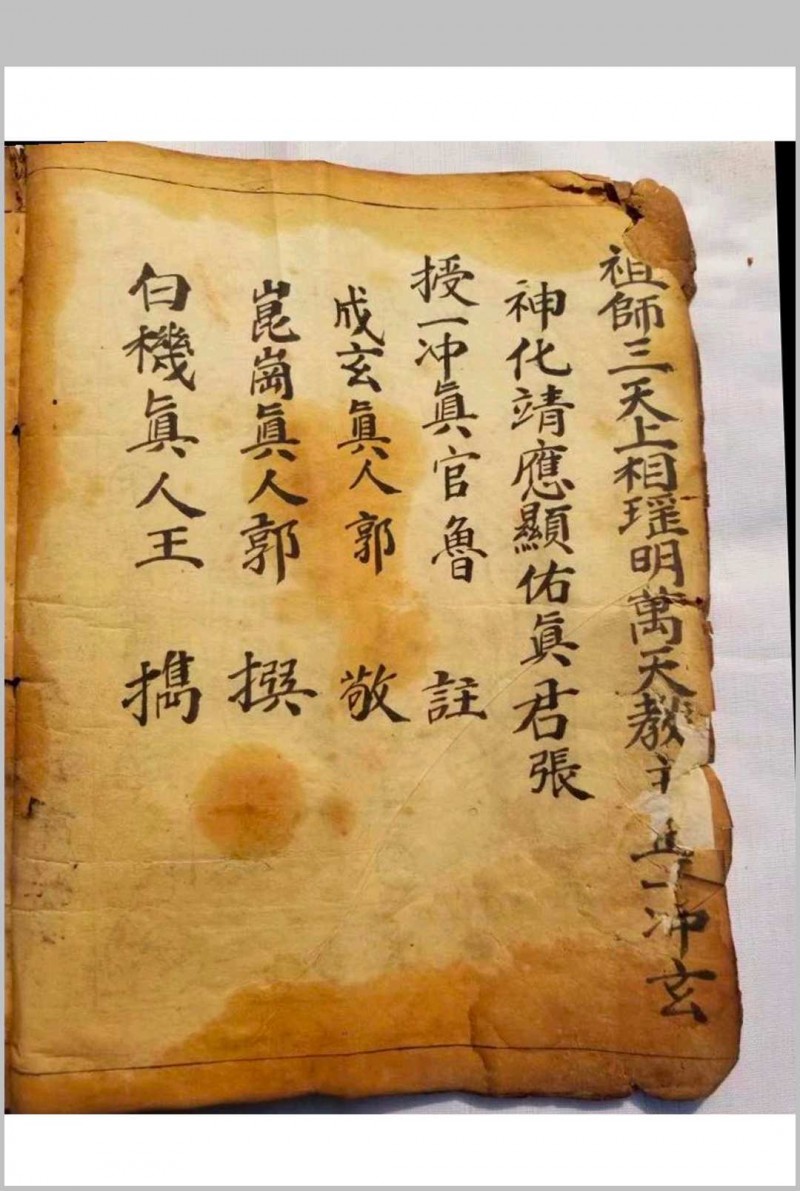 祖師三天上相瑤明萬天教主正一冲玄
神化靖應顯佑眞君張
授一冲眞官魯 註
成玄眞人郭 敬
崑崗眞人郭 撰
白機眞人王 㩦